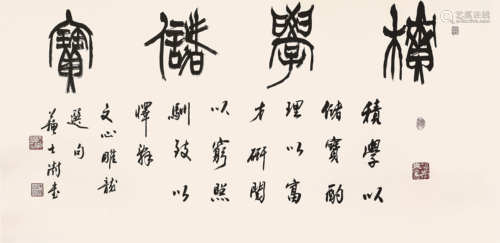 積學儲寶
積學以
儲寶酌
理以富
才研閱
以窮照
馴致以
懌辭
文心雕龍
選句
蘇士澍書